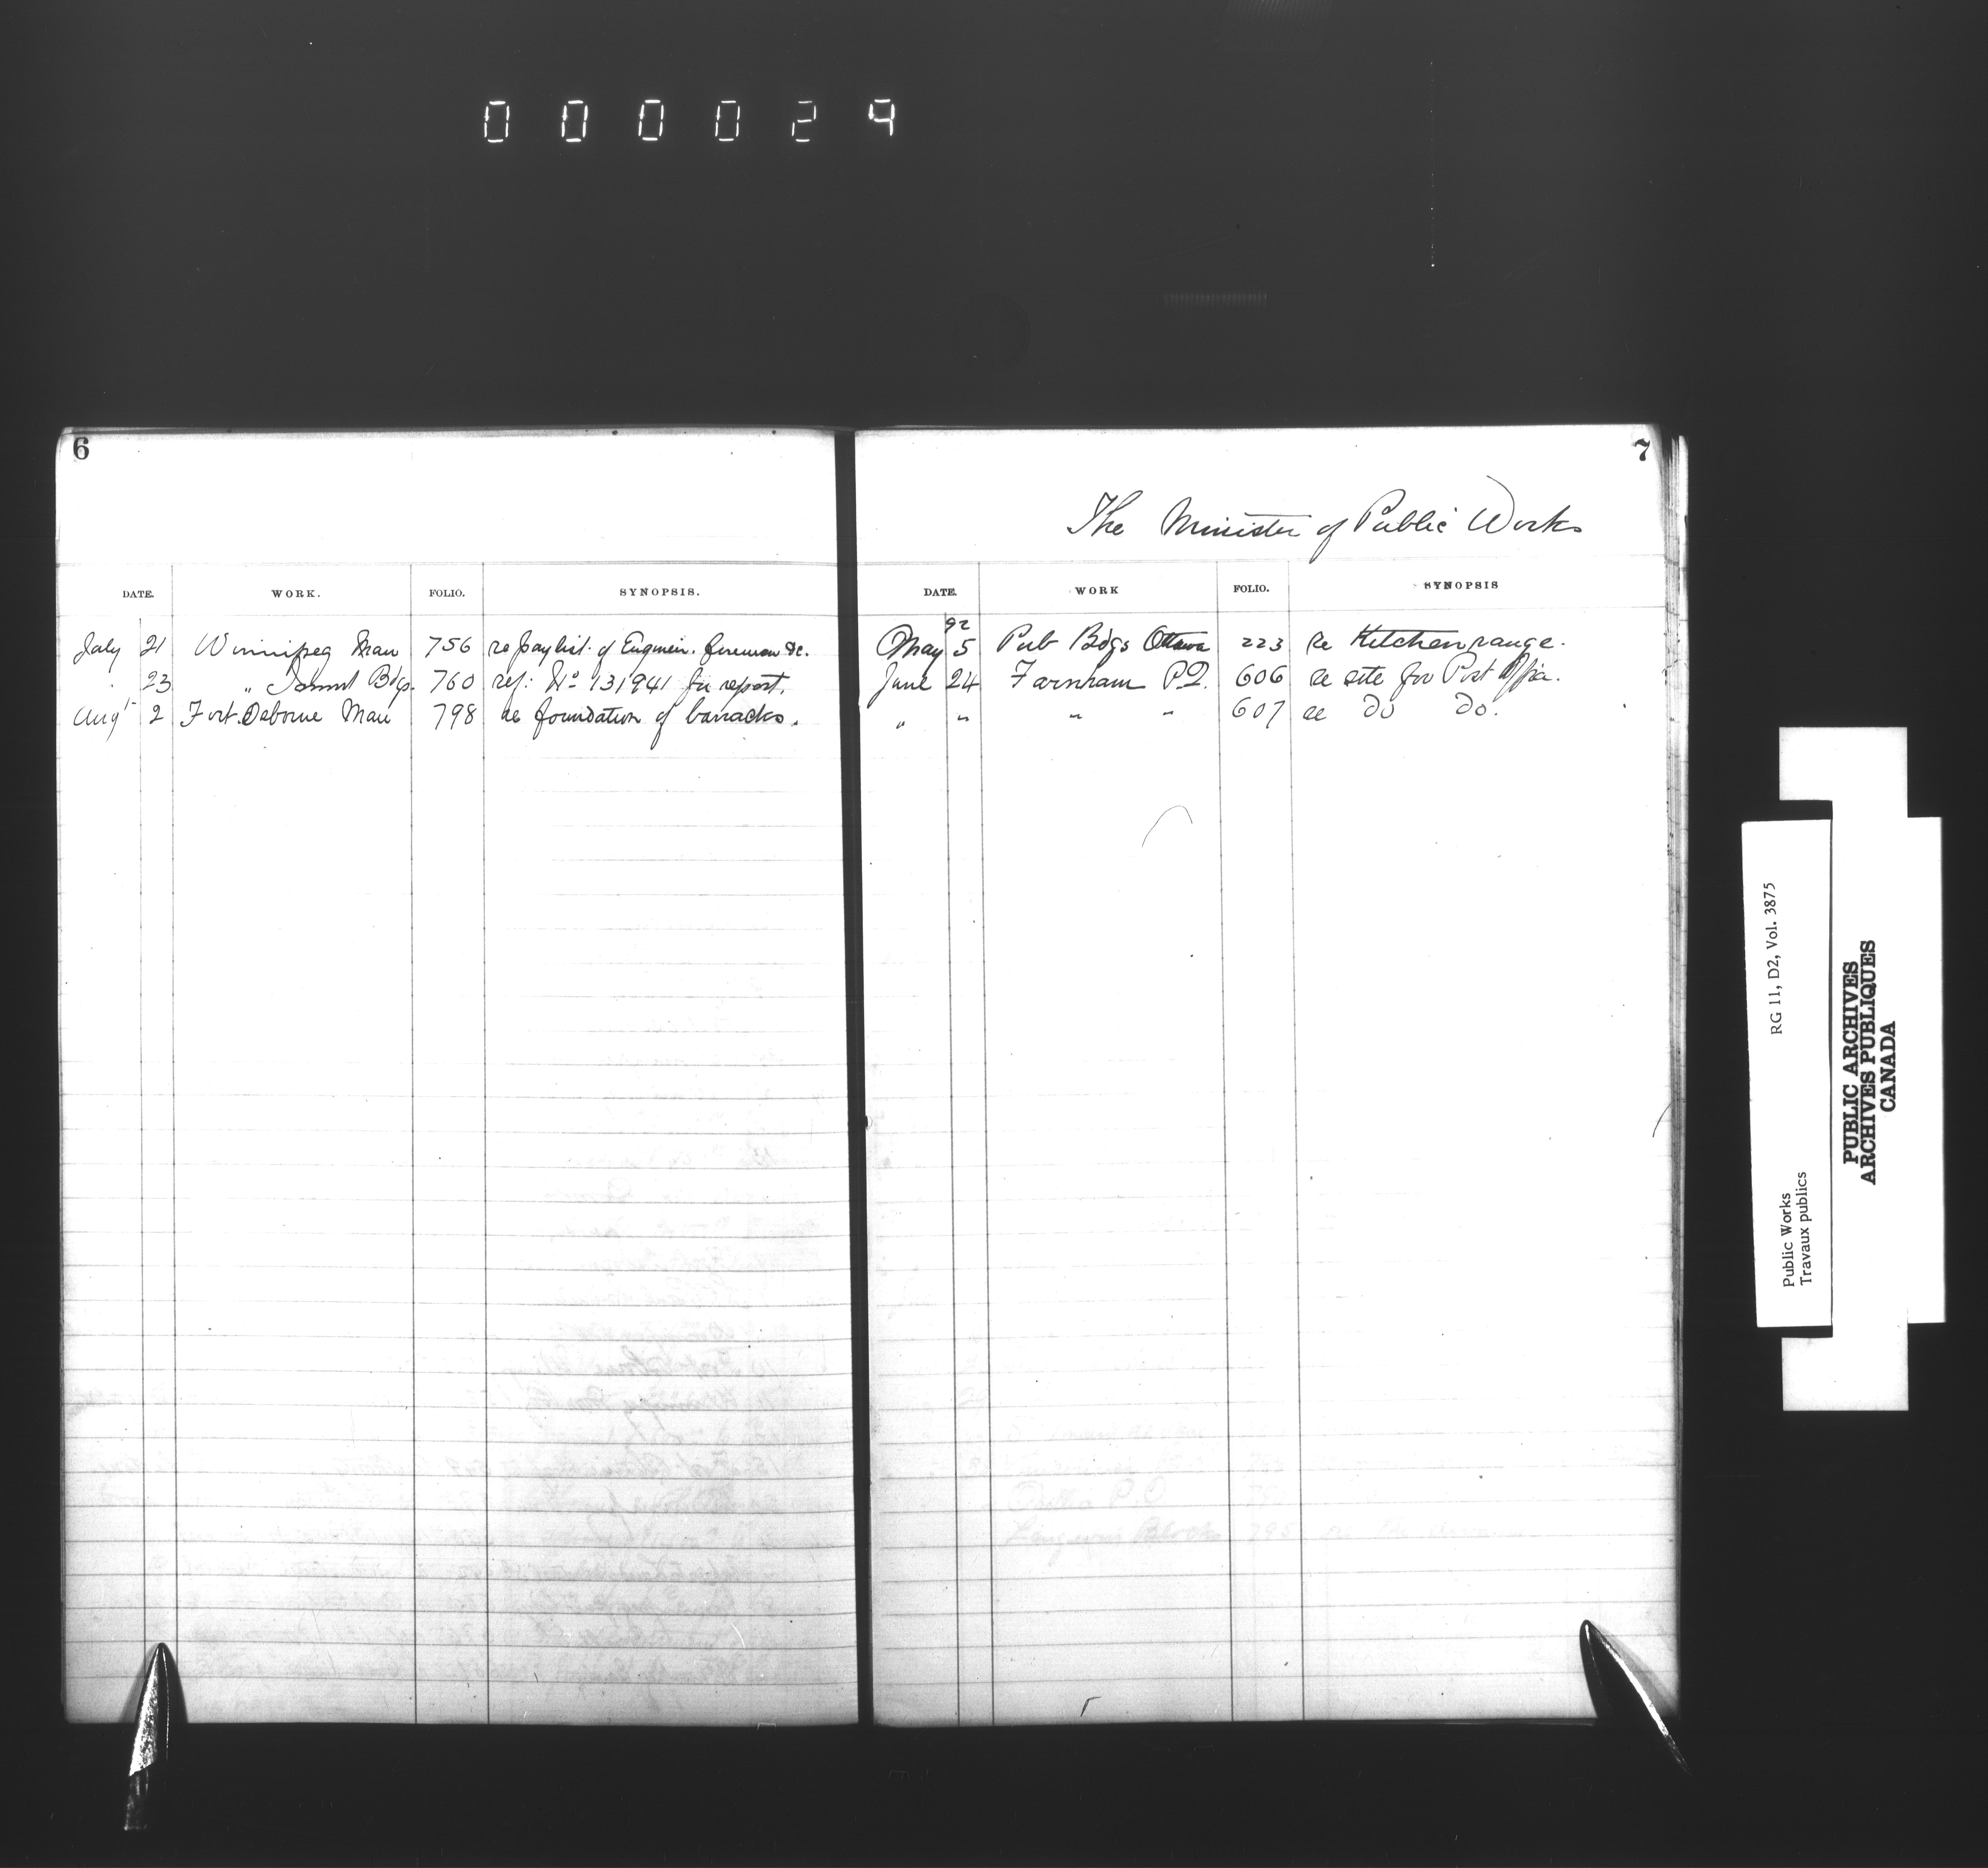 000024
6
DATE. WORK. FOLIO. SYNOPSIS.
July 21 Winnipeg Man 756 re paylist of Engineer. fireman &c.
" 23 " Immt Bdgs. 760 ref: No 131941 for report.
Augt 2 Fort Osborne Man 798 re foundation of barracks.
7
The Minister of Public Works
DATE. WORK FOLIO. SYNOPSIS
92
May 5 Pub Bdgs Ottawa 223 re Kitchen range.
June 24 Farnham P.Q. 606 re site for Post Office.
" " " " 607 re do do.
RG 11, D2, Vol. 3875
Public Works
Travaux publics
PUBLIC ARCHIVES
ARCHIVES PUBLIQUES
CANADA